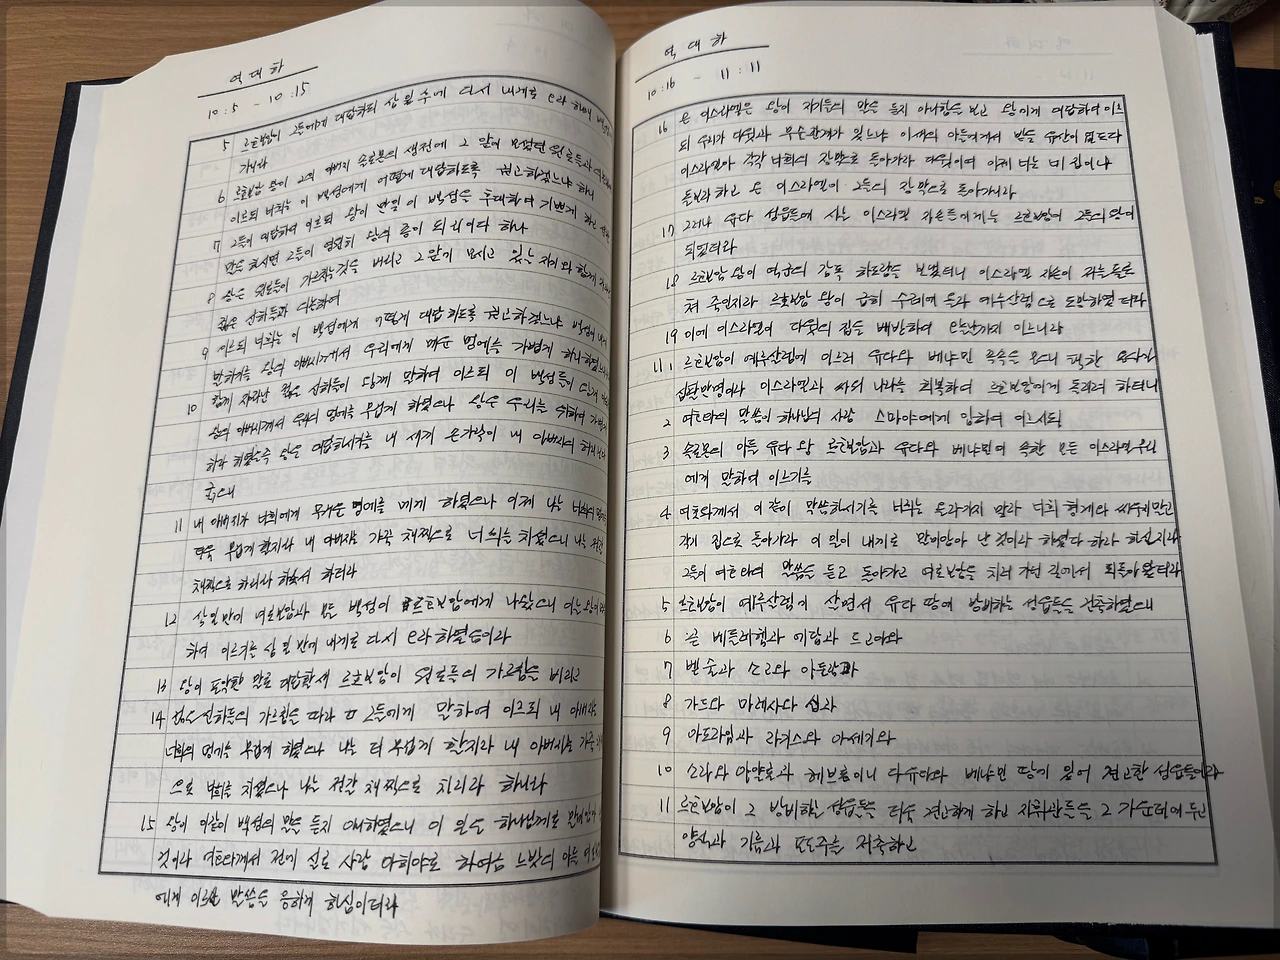 역대하
10:5 ~ 10:15
5 르호보암이 그들에게 대답하되 삼 일 후에 다시 내게로 오라 하매 백성이
가니라
6 르호보암 왕이 그의 아버지 솔로몬의 생전에 그 앞에 모셨던 원로들과
이르되 너희는 이 백성에게 어떻게 대답하도록 권고하겠느냐 하니
7 그들이 대답하여 이르되 왕이 만일 이 백성을 후대하여 기쁘게 하고 선한
말을 하시면 그들이 영원히 왕의 종이 되리이다 하나
8 왕은 원로들이 가르치는 것을 버리고 그 앞에 모시고 있는 자기와 함께 자라난
젊은 신하들과 의논하여
9 이르되 너희는 이 백성에게 어떻게 대답하도록 권고하겠느냐 백성이 내게
말하기를 왕의 아버지께서 우리에게 메운 멍에를 가볍게 하라 하였느니라
10 함께 자라난 젊은 신하들이 왕께 말하여 이르되 이 백성들이 왕께
왕의 아버지께서 우리의 멍에를 무겁게 하였으나 왕은 우리를 위하여 가볍게
하라 하였은즉 왕은 대답하시기를 내 새끼 손가락이 내 아버지의 허리보다
굵으니
11 내 아버지가 너희에게 무거운 멍에를 메게 하였으나 이제 나는 너희의 멍에를
더욱 무겁게 할지라 내 아버지는 가죽 채찍으로 너희를 치셨으나 나는 전갈
채찍으로 하리라 하소서 하더라
12 삼 일 만에 여로보암과 모든 백성이 르호보암에게 나왔으니 이는 왕이
하여 이르기를 삼 일 만에 내게로 다시 오라 하였음이라
13 왕이 포악한 말로 대답할새 르호보암이 원로들의 가르침을 버리고
14 젊은 신하들의 가르침을 따라 그들에게 말하여 이르되 내 아버지는
너희의 멍에를 무겁게 하였으나 나는 더 무겁게 할지라 내 아버지는 가죽 채찍
으로 너희를 치셨으나 나는 전갈 채찍으로 치리라 하니라
15 왕이 이같이 백성의 말을 듣지 아니하였으니 이 일은 하나님께로 말미암아 난
것이라 여호와께서 전에 실로 사람 아히야로 하여금 느밧의 아들 여로보암
에게 이르신 말씀을 응하게 하심이더라
역대하
10:16 ~ 11:11
16 온 이스라엘은 왕이 자기들의 말을 듣지 아니함을 보고 왕에게 대답하여 이르
되 우리가 다윗과 무슨 관계가 있느냐 이새의 아들에게서 받을 유산이 없도다
이스라엘아 각각 너희의 장막으로 돌아가라 다윗이여 이제 너는 네 집이나
돌보라 하고 온 이스라엘이 그들의 장막으로 돌아가니라
17 그러나 유다 성읍들에 사는 이스라엘 자손들에게는 르호보암이 그들의 왕이
되었더라
18 르호보암 왕이 역군의 감독 하도람을 보냈더니 이스라엘 자손이 저를 돌로
쳐 죽인지라 르호보암 왕이 급히 수레에 올라 예루살렘으로 도망하였더라
19 이에 이스라엘이 다윗의 집을 배반하여 오늘날까지 이르니라
11:1 르호보암이 예루살렘에 이르러 유다와 베냐민 족속을 모으니 택한 용사가
십팔만 명이라 이스라엘과 싸워 나라를 회복하여 르호보암에게 돌리려 하더니
2 여호와의 말씀이 하나님의 사람 스마야에게 임하여 이르시되
3 솔로몬의 아들 유다 왕 르호보암과 유다와 베냐민에 속한 모든 이스라엘 무리
에게 말하여 이르기를
4 여호와께서 이같이 말씀하시기를 너희는 올라가지 말라 너희 형제와 싸우지 말고
각기 집으로 돌아가라 이 일이 내게로 말미암아 난 것이라 하셨다 하라 하신지라
그들이 여호와의 말씀을 듣고 돌아가고 여로보암을 치러 가던 길에서 되돌아왔더라
5 르호보암이 예루살렘에 살면서 유다 땅에 방비하는 성읍들을 건축하였으니
6 곧 베들레헴과 에담과 드고아와
7 벧술과 소고와 아둘람과
8 가드와 마레사와 십과
9 아도라임과 라기스와 아세가와
10 소라와 아얄론과 헤브론이니 다 유다와 베냐민 땅에 있어 견고한 성읍들이라
11 르호보암이 그 방비하는 성읍들을 더욱 견고하게 하고 지휘관들을 그 가운데에 두고
양식과 기름과 포도주를 저축하고